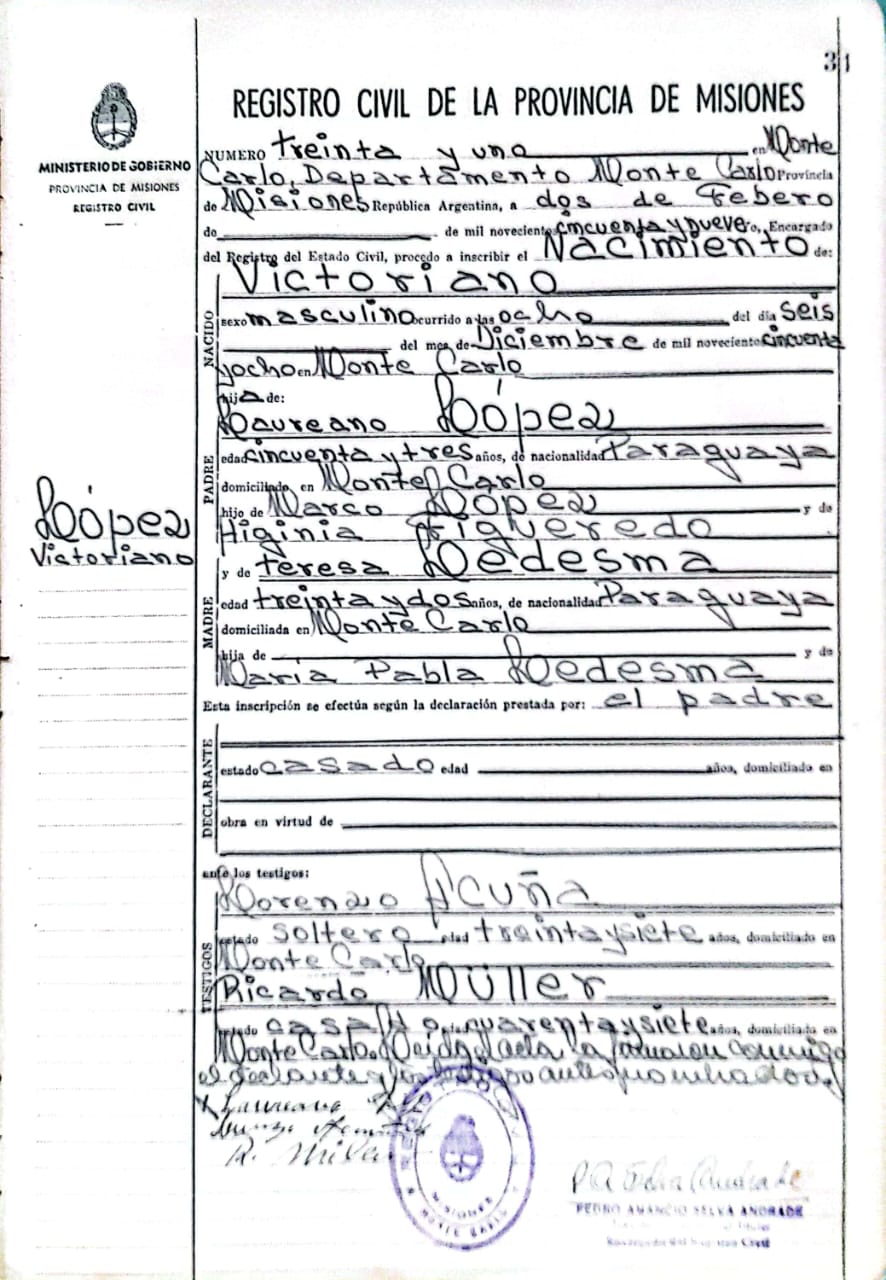 31
REGISTRO CIVIL DE LA PROVINCIA DE MISIONES
MINISTERIO DE GOBIERNO
PROVINCIA DE MISIONES
REGISTRO CIVIL
NUMERO treinta y uno en Monte
Carlo, Departamento Monte Carlo Provincia
de Misiones República Argentina, a dos de Febero
de de mil novecientos cincuenta y nueve, Encargado
del Registro del Estado Civil, procedo a inscribir el Nacimiento de:
NACIDO
Victoriano
sexo masculino ocurrido a las ocho del día seis
del mes de Diciembre de mil noveciento cincuenta
yocho en Monte Carlo
hijo de:
PADRE
Laureano López
edad cincuenta y tres años, de nacionalidad Paraguaya
domiciliado en Monte Carlo
hijo de Marco López y de
Higinia Figueredo
López
Victoriano
MADRE
y de teresa Ledesma
edad treinta y dos años, de nacionalidad Paraguaya
domiciliada en Monte Carlo
hija de y de
María Pabla Ledesma
Esta inscripción se efectúa según la declaración prestada por: el padre
DECLARANTE
estado casado edad años, domiciliado en
obra en virtud de
ante los testigos:
TESTIGOS
Lorenzo Acuña
estado soltero edad treintaysiete años, domiciliado en
Monte Carlo
Ricardo Müller
estado casado edad cuarentaysiete años, domiciliado en
Monte Carlo. Leida el acta la conmigo
el y los
Laureano
R.
MISIONES
MONTE CARLO
PEDRO AMANCIO SELVA ANDRADE
Encargado del Registro Civil